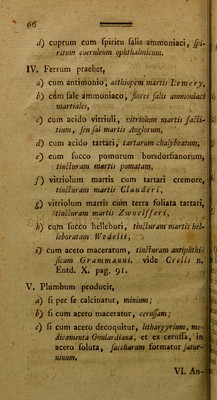 66
d) cuprum cum spiritu salis ammoniaci, spi-
ritum coeruleum ophthalmicum.
IV. Ferrum praebet,
a) cum antimonio, aethiopem martis Lemery,
b) cum sale ammoniaco, flores salis ammoniaci
martiales,
c) cum acido vitrioli, vitriolum martis facti-
tium, seu sal martis Anglorum,
d) cum acido tartari, tartarum chalybeatum,
e) cum succo pomorum botsdorfianorum,
tincturam martis pomatam,
f) vitriolum martis cum tartari cremore,
tincturam martis Clauderi,
g) vitriolum martis cum terra foliata tartari,
tincturam martis Zwoelfferi,
h) cum succo hellebori, tincturam martis hel-
leboratam Wedelii,
i) cum aceto maceratum, tincturam antiphthi-
sicam Grammanni. vide Crells n.
Entd. X. pag. 91.
V. Plumbum producit,
a) si per se calcinatur, minium;
b) si cum aceto maceratur, cerussam;
c) si cum aceto decoquitur, lithargyrium, me-
dicamenta Goulardiana. et ex cerussa, in
aceto soluta, saccharum formatur satur-
ninum.
VI. An-